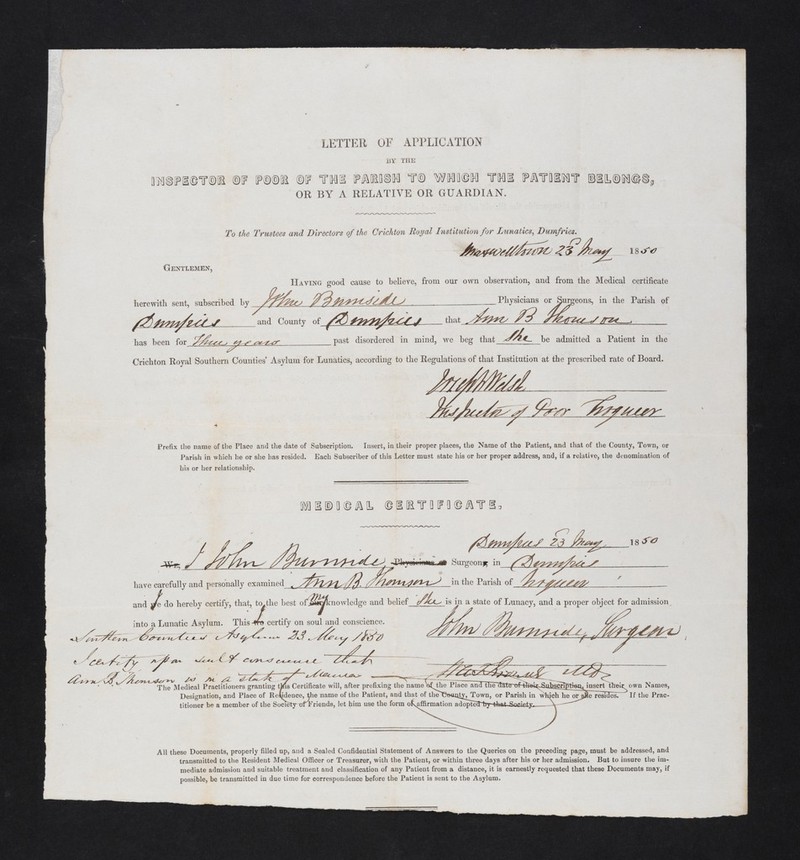 LETTER OF APPLICATION
BY THE
INSPECTOR OF POOR OF THE PARISH TO WHICH THE PATIENT BELONGS,
OR BY A RELATIVE OR GUARDIAN.
To the Trustees and Directors of the Crichton Royal Institution for Lunatics, Dumfries.
Maxwelltown 23d May 1850
GENTLEMEN,
HAVING good cause to believe, from our own observation, and from the Medical certificate
herewith sent, subscribed by John Burnside Physicians or Surgeons, in the Parish of
Dumfries and County of Dumfries that Ann B Thomson
has been for Three years past disordered in mind, we beg that She be admitted a Patient in the
Crichton Royal Southern Counties' Asylum for Lunatics, according to the Regulations of that Institution at the prescribed rate of Board.
Joseph Welsh
Inspector of Poor Troqueer
Prefix the name of the Place and the date of Subscription. Insert, in their proper places, the Name of the Patient, and that of the County, Town, or
Parish in which he or she has resided. Each Subscriber of this Letter must state his or her proper address, and, if a relative, the denomination of
his or her relationship.
MEDICAL CERTIFICATE.
Dumfries 23d May 1850
We, I John Burnside Physicians or Surgeons in Dumfries
have carefully and personally examined Ann B. Thomson in the Parish of Troqueer
and I do hereby certify, that, to the best of My knowledge and belief She is in a state of Lunacy, and a proper object for admission
into a Lunatic Asylum. This I certify on soul and conscience.
John Burnside, Surgeon
Southern Counties Asylum 23 May 1850
I certify upon soul & conscience that
Ann B. Thomson is in a state of Mania
The Medical Practitioners granting this Certificate will, after prefixing the name of the Place and the date of their Subscription, insert their own Names,
Designation, and Place of Residence, the name of the Patient, and that of the County, Town, or Parish in which he or she resides. If the Prac-
titioner be a member of the Society of Friends, let him use the form of affirmation adopted by that Society.
All these Documents, properly filled up, and a Sealed Confidential Statement of Answers to the Queries on the preceding page, must be addressed, and
transmitted to the Resident Medical Officer or Treasurer, with the Patient, or within three days after his or her admission. But to insure the im-
mediate admission and suitable treatment and classification of any Patient from a distance, it is earnestly requested that these Documents may, if
possible, be transmitted in due time for correspondence before the Patient is sent to the Asylum.